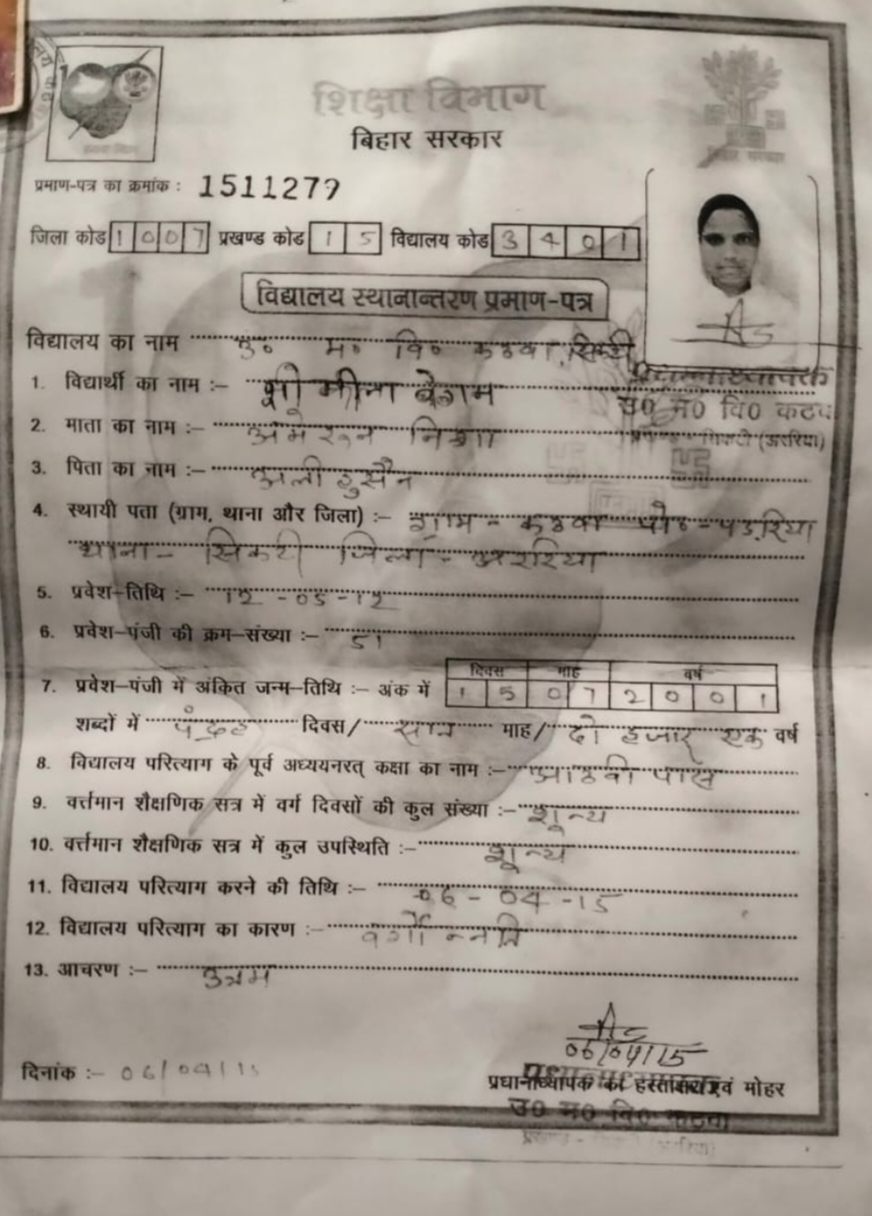 शिक्षा विभाग
बिहार सरकार
प्रमाण-पत्र का क्रमांक : 1511279
जिला कोड 1007 प्रखण्ड कोड 15 विद्यालय कोड 3401
विद्यालय स्थानान्तरण प्रमाण-पत्र
विद्यालय का नाम उ० म० वि० कठवा सिकटी
1. विद्यार्थी का नाम :– मीना बेगम
उ० म० वि० कठवा
2. माता का नाम :–
(अररिया)
3. पिता का नाम :– अली हुसैन
4. स्थायी पता (ग्राम, थाना और जिला) :– ग्राम - कठवा पो० - पड़रिया
थाना - सिकटी जिला - अररिया
5. प्रवेश-तिथि :– 12-05-12
6. प्रवेश-पंजी की क्रम-संख्या :– 51
दिवस माह वर्ष
7. प्रवेश-पंजी में अंकित जन्म-तिथि :– अंक में 15 07 2001
शब्दों में पंद्रह दिवस/ सात माह/ दो हजार एक वर्ष
8. विद्यालय परित्याग के पूर्व अध्ययनरत् कक्षा का नाम :– आठवी पास
9. वर्त्तमान शैक्षणिक सत्र में वर्ग दिवसों की कुल संख्या :– शून्य
10. वर्त्तमान शैक्षणिक सत्र में कुल उपस्थिति :– शून्य
11. विद्यालय परित्याग करने की तिथि :– 06-04-15
12. विद्यालय परित्याग का कारण :– वर्गोन्नति
13. आचरण :– उत्तम
06/04/15
दिनांक :– 06/04/15
प्रधानाध्यापक का हस्ताक्षर एवं मोहर
उ० म० वि० कठवा